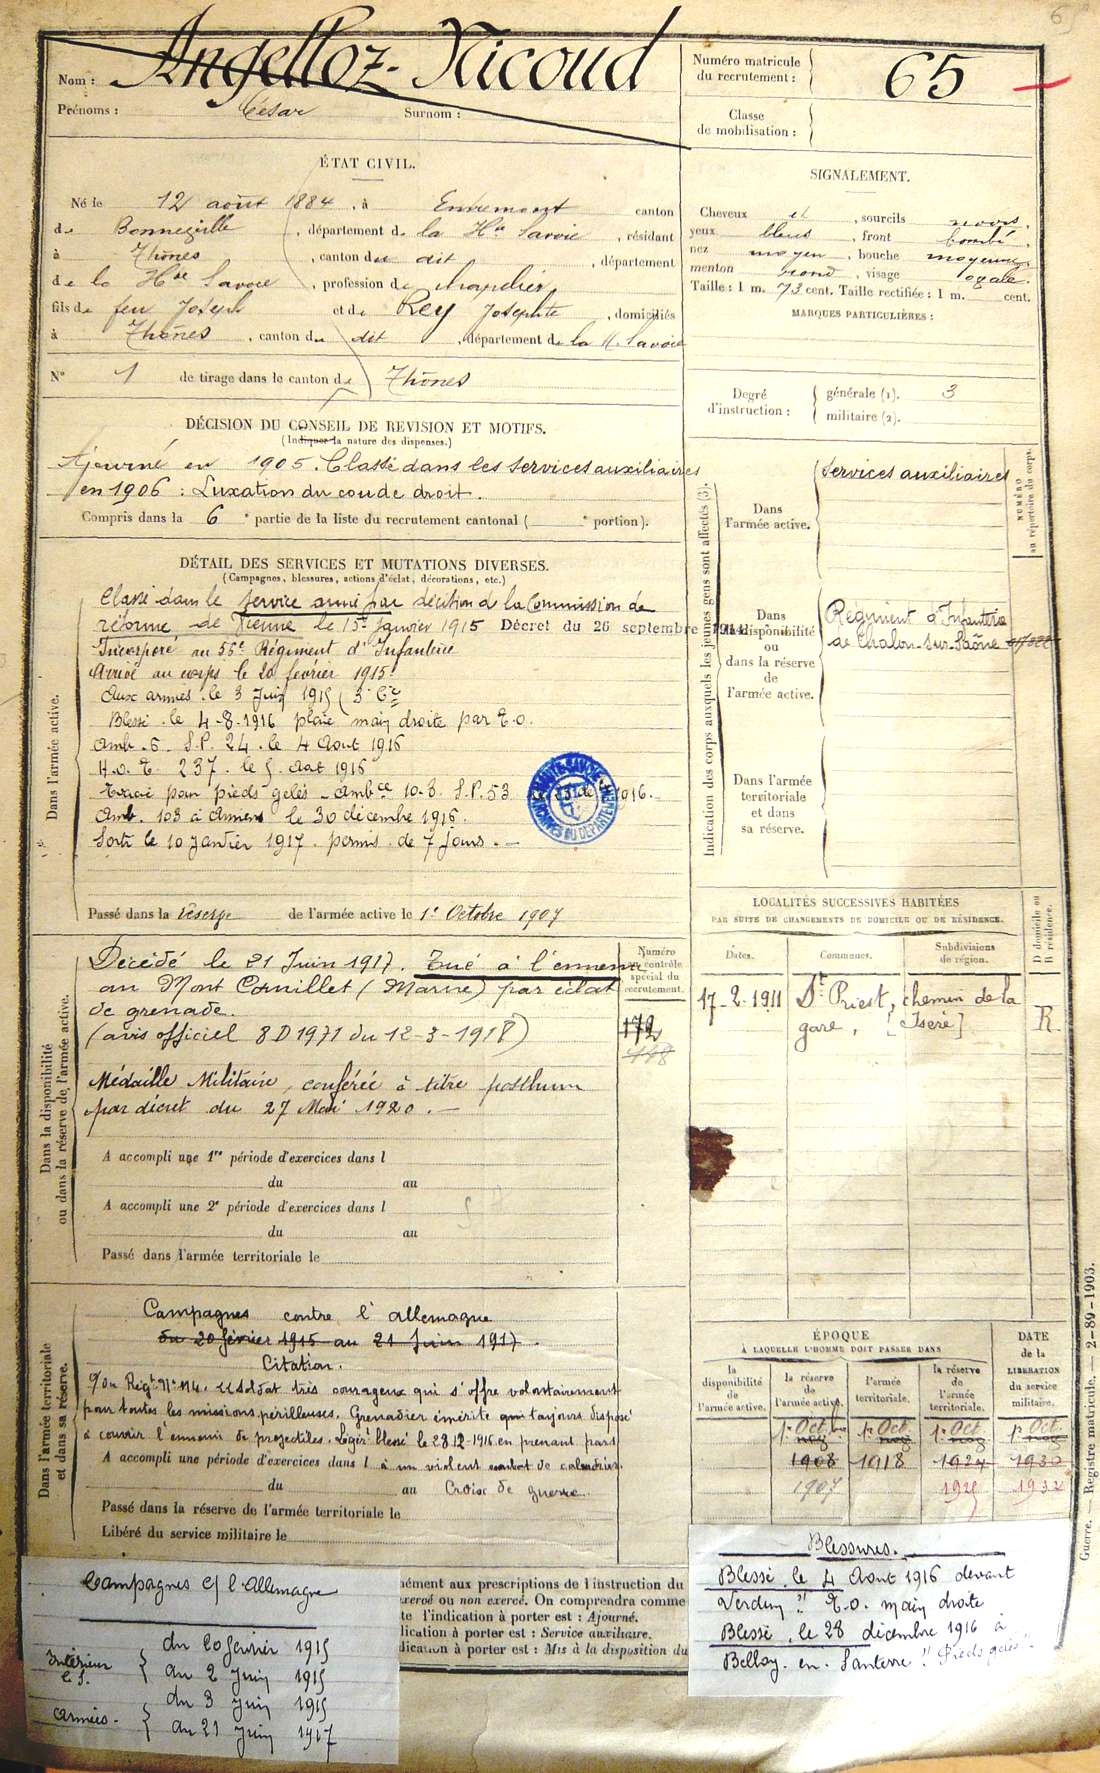 6
Nom : Angelloz-Nicoud
Prénoms : César Surnom :
Numéro matricule
du recrutement : 65
Classe
de mobilisation :
ÉTAT CIVIL.
Né le 12 août 1884, à Entremont canton
de Bonneville, département de la Hte Savoie, résidant
à Thônes, canton du dit, département
de la Hte Savoie, profession de
fils de feu Joseph et de Rey Josephte, domiciliés
à Thônes, canton du dit, département de la H. Savoie
N° 1 de tirage dans le canton de Thônes
SIGNALEMENT.
Cheveux et, sourcils noirs.
yeux bleus, front bombé.
nez moyen, bouche moyenne
menton rond, visage ovale.
Taille : 1 m. 73 cent. Taille rectifiée : 1 m. cent.
MARQUES PARTICULIÈRES :
Degré
d'instruction :
générale (1). 3
militaire (2).
DÉCISION DU CONSEIL DE REVISION ET MOTIFS.
(Indiquer la nature des dispenses.)
Ajourné en 1905. Classé dans les services auxiliaires
en 1906 : Luxation du coude droit.
Compris dans la 6e partie de la liste du recrutement cantonal ( e portion).
DÉTAIL DES SERVICES ET MUTATIONS DIVERSES.
(Campagnes, blessures, actions d'éclat, décorations, etc.)
Dans l'armée active.
Classé dans le service armé par décision de la Commission de
réforme de Vienne le 15 Janvier 1915 Décret du 26 septembre 1914
Incorporé au 56e Régiment d'Infanterie
Arrivé au corps le 20 février 1915.
Aux armées le 3 Juin 1915 (3e Cie
Blessé le 4-8-1916 plaie main droite par E.O.
Amb. 6. S.P. 24. le 4 Août 1916
H.O.E. 237. le 5 Août 1916
Evacué pour pieds gelés - Ambce 10-3. S.P. 53 1916. -
Amb. 103 à Amiens le 30 décembre 1916.
Sorti le 10 Janvier 1917. permis. de 7 jours. -
Passé dans la réserve de l'armée active le 1er Octobre 1907
Indication des corps auxquels les jeunes gens sont affectés (3).
Dans
l'armée active.
Services auxiliaires
NUMÉRO
au répertoire du corps.
Dans
la disponibilité
ou
dans la réserve
de
l'armée active.
Régiment d'Infanterie
de Chalon-sur-Saône
Dans l'armée
territoriale
et dans
sa réserve.
LOCALITÉS SUCCESSIVES HABITÉES
PAR SUITE DE CHANGEMENTS DE DOMICILE OU DE RÉSIDENCE.
Dates. Communes. Subdivisions
de région.
D domicile ou
R résidence.
17-2-1911 St Priest, chemin de la
gare, [Isère] R
Dans la disponibilité
ou dans la réserve de l'armée active.
Décédé le 21 Juin 1917. Tué à l'ennemi
au Mont Cornillet (Marne) par éclat
de grenade.
(avis officiel 8 D 1971 du 12-3-1918)
Médaille Militaire, conférée à titre posthume
par décret du 27 Mai 1920. -
Numéro
au contrôle
spécial du
recrutement.
172
448
A accompli une 1re période d'exercices dans l
du au
A accompli une 2e période d'exercices dans l
du au
Passé dans l'armée territoriale le
Dans l'armée territoriale
et dans sa réserve.
Campagnes contre l'Allemagne
du 20 février 1915 au 21 Juin 1917.
Citation.
Régt N° 114. Soldat très courageux qui s'offre volontairement
pour toutes les missions périlleuses. Grenadier émérite qui toujours disposé
à couvrir l'ennemi de projectiles. Légèrt blessé le 28-12-1916 en prenant part
A accompli une période d'exercices dans l à un violent combat de
du au Croix de guerre
Passé dans la réserve de l'armée territoriale le
Libéré du service militaire le
ÉPOQUE
À LAQUELLE L'HOMME DOIT PASSER DANS
la
disponibilité
de
l'armée active.
la réserve
de
l'armée active.
l'armée
territoriale.
la réserve
de
l'armée
territoriale.
DATE
de la
LIBÉRATION
du service
militaire.
1er Oct. 1er Oct. 1er Oct. 1er Oct.
1908 1918 1924 1930
1907
Guerre. — Registre matricule. — 2-89-1903.
Campagnes c/ l'Allemagne
Intérieur du 20 février 1915
au 2 Juin 1915
Armées. du 3 Juin 1915
au 21 Juin 1917
ément aux prescriptions de l'instruction du
exercé ou non exercé. On comprendra comme
te l'indication à porter est : Ajourné.
dication à porter est : Service auxiliaire.
dication à porter est : Mis à la disposition du
Blessures.
Blessé le 4 Août 1916 devant
Verdun " E.O. main droite
Blessé le 28 décembre 1916 à
Belloy. en. Santerre " Pieds gelés "